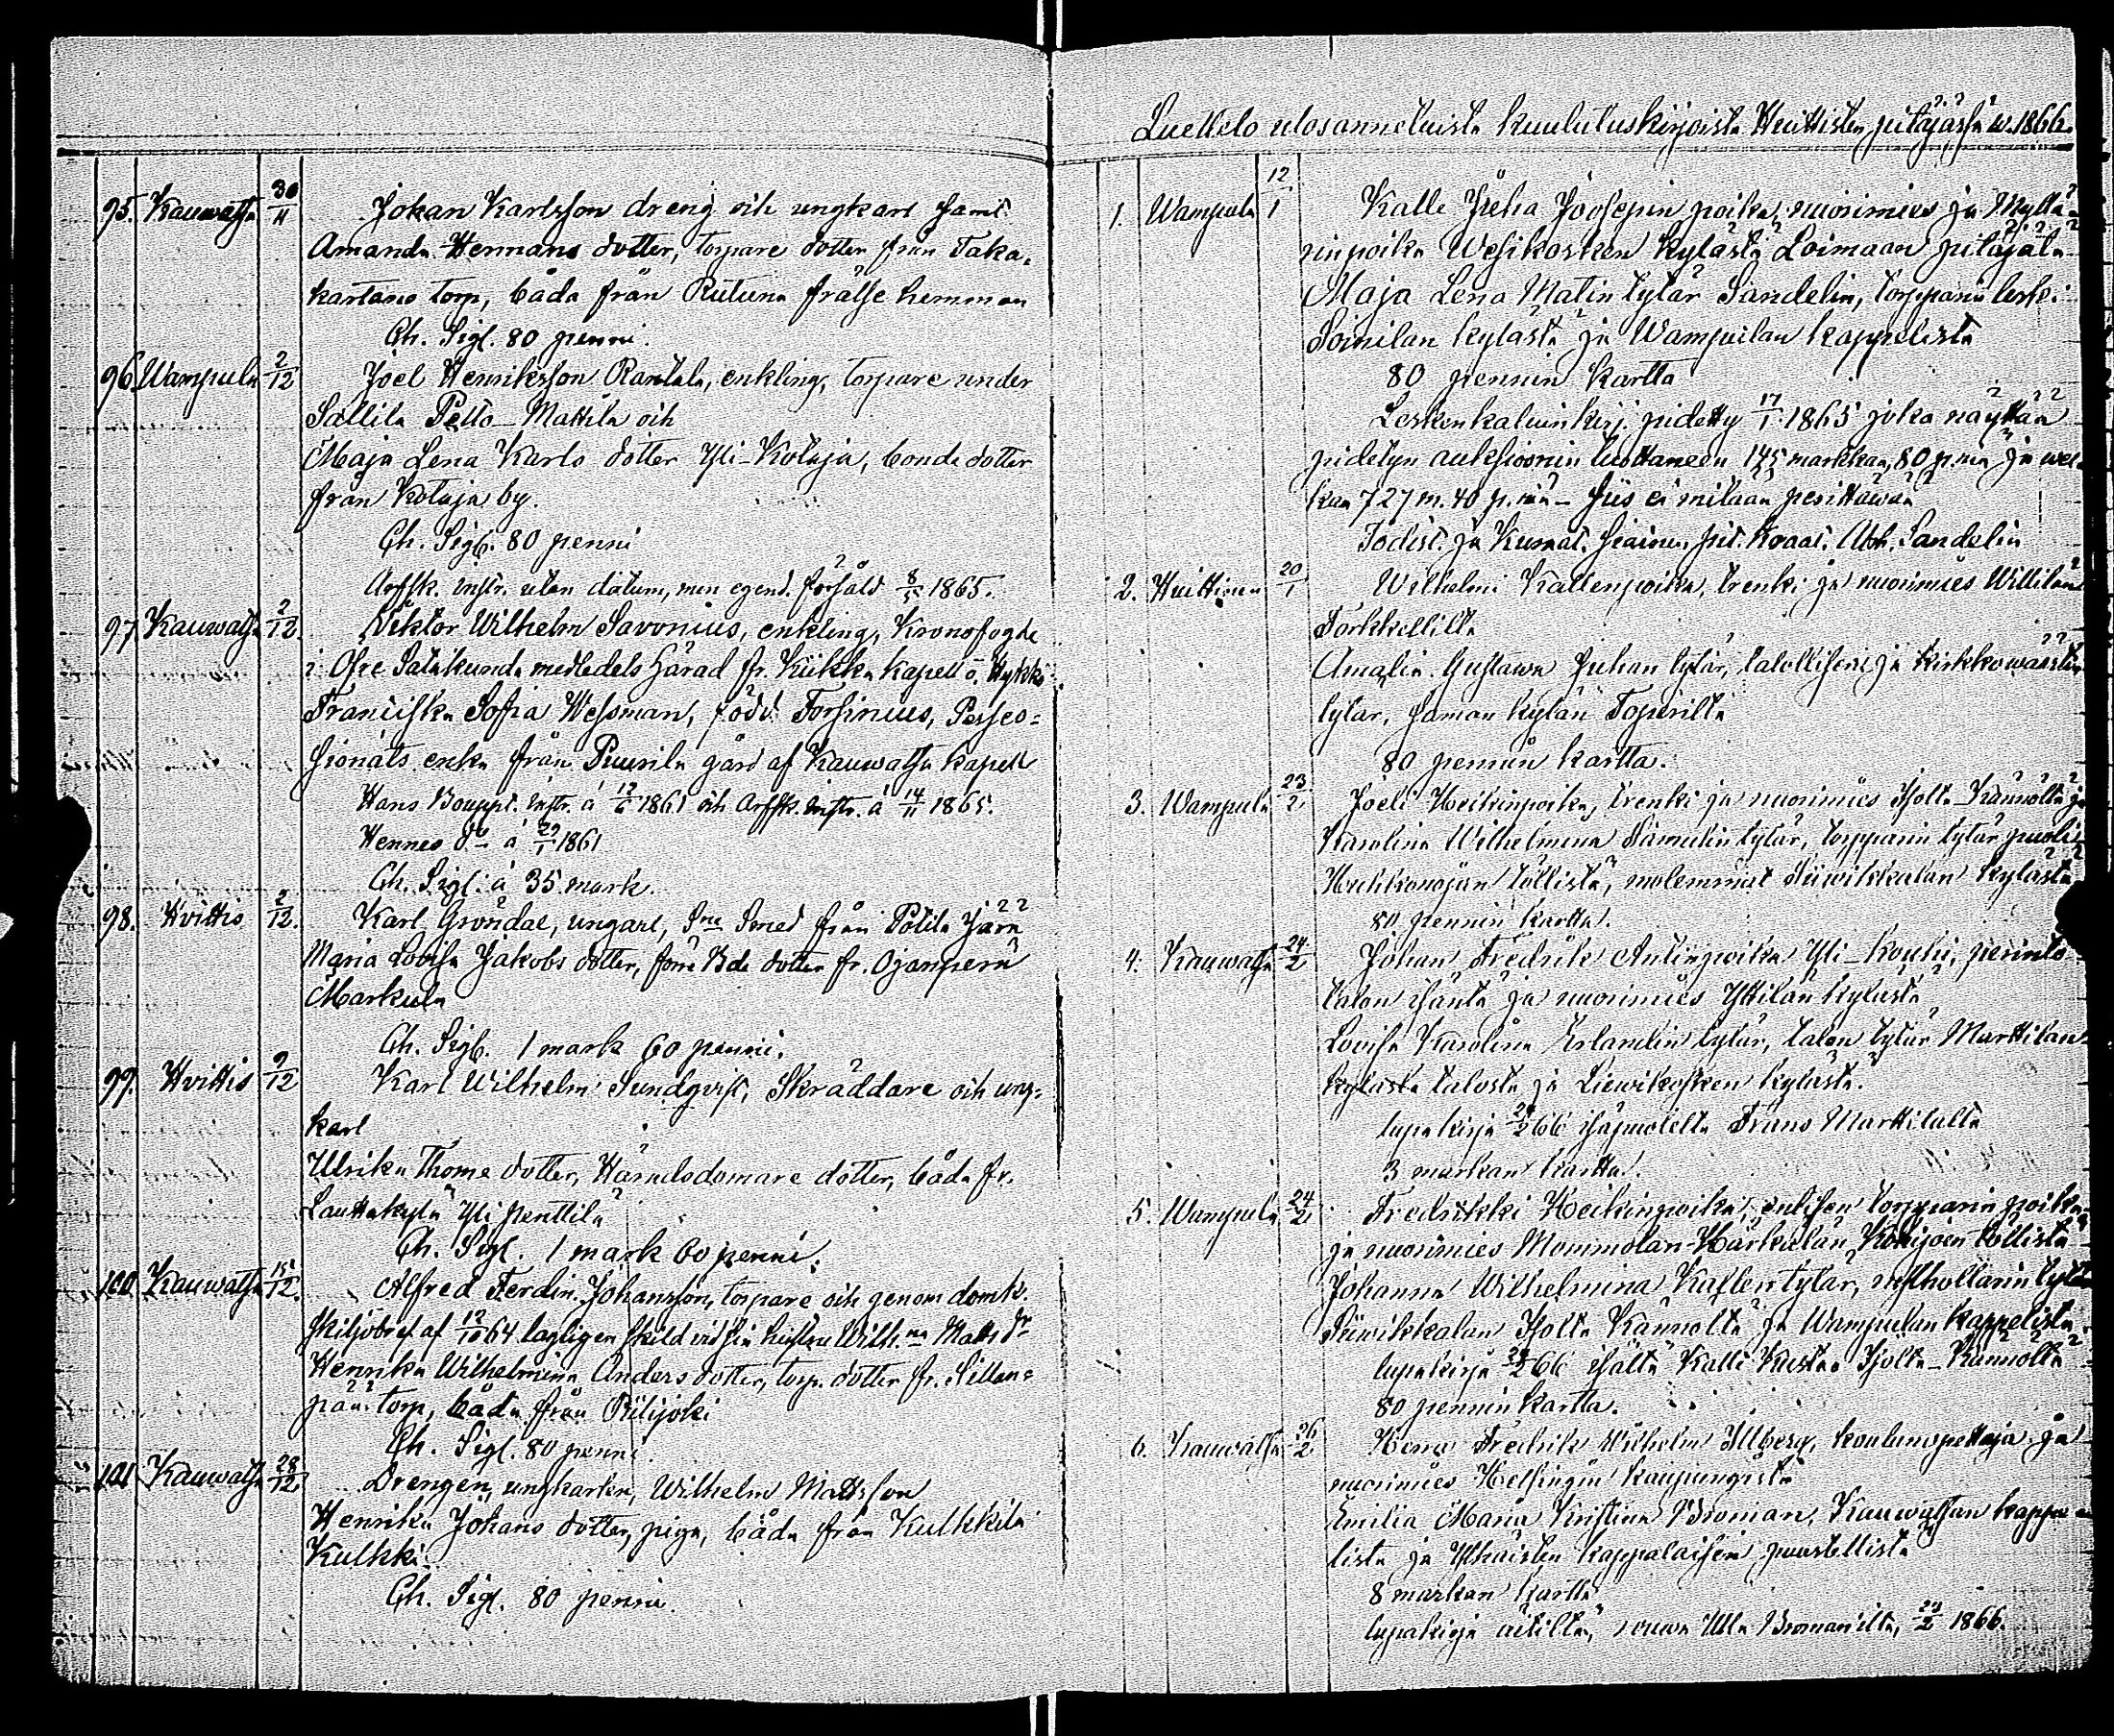 95. Kauwatsa 30/11 Johan Karlsson dreng och ungkarl samt
Amanda Hermans dotter, torpare dotter från Taka-
kartano torp, båda från Rutuna frälse hemman
Ch. Sigl. 80 penni.
96. Wampula 2/12 Joel Henriksson Rantala, enkling, torpare under
Sallila Pello-Mattila och
Maja Lena Karls dotter Yli-Kotaja, bonde dotter
från Kotaja by.
Ch. Sigl. 80 penni
Arfsk. instr. utan datum, men egend. försåld 8/5 1865.
97. Kauwatsa 2/12. Viktor Wilhelm Savonius, enkling, Kronofogde
i Öfre Satakunda medledels härad fr. Kiikka kapell o.
Franciska Sofia Wessman, född Forsinius, Posses-
sionats enka från Puurila gård af Kauwatsa kapell
Hans Bouppt. instr. á 12/6 1861 och Arfsk. instr. á 14/11 1865.
Hennes do á 29/1 1861
Ch. Sigl. á 35 mark.
98. Hvittis 2/12. Karl Gröndal, ungkarl, Smed från Potila Jära
Maria Lovisa Jakobs dotter, dotter fr. Ojanperä
Markula
Ch. Sigl. 1 mark 60 penni.
99. Hvittis 9/12 Karl Wilhelm Sundqvist, Skräddare och ung-
karl
Ulrika Thome dotter, Häradsdomare dotter, båda fr.
Lauttakylä Yli Penttilä
Ch. Sigl. 1 mark 60 penni.
100. Kauwatsa 15/12. Alfred Ferdin. Johansson, torpare och genom domk.
skiljobref af 12/10 64 lagligen skild vid sin hustru Wilh.na Matts dr
Henrika Wilhelmina Anders dotter, torp. dotter fr. Sillan-
pää torp, båda från Piilijoki
Ch. Sigl. 80 penni.
101. Kauwatsa 28/12 Drengen, ungkarlen, Wilhelm Mattsson
Henrika Johans dotter, piga, båda från Kulkkila
Kulkki.
Ch. Sigl. 80 penni.
Luettelo ulosannetuista kuulutuskirjoista Huittisten pitäjässä w. 1866.
1. Wampula 12/1 Kalle Juha Joosepin poika, nuorimies ja Myllä-
rinpoika Wesikosken kylästä Loimaan pitäjätä
Maja Lena Matin tytär Sandelin, torpparin leski
Soinilan kylästä ja Wampulan kappelista
80 pennin kartta
Leskenkaluunkirj. pidetty 17/1 1865 joka näyttää
pidetyn auksioonin tuottaneen 145 markkaa, 80 p.niä ja wel-
kaa 727 m. 40 p.niä - siis ei mitään perittäwää
Todist. ja Kumat. pit. Abr. Sandelin
2. Huittinen 20/1 Wilhelmi Kallenpoika, trenki ja nuorimies Willilän
Torkkellilta
Amalia Gustawa Juhan tytär, talollisen ja kirkkowäärtin
tytär, saman kylän Toperilta
80 pennin kartta.
3. Wampula 23/2 Joeli Heikinpoika, trenki ja nuorimies Isolta-Kännöltä ja
Karolina Wilhelmina Samulin tytär, torpparin tytär puoli-
Huhkonojan töllistä, molemmat Siiwikkalan kylästä
80 pennin kartta.
4. Kauwatsa 24/2 Johan Fredrik Antinpoika Yli-Kouhi, perintö
talon isäntä ja nuorimies Yttilän kylästä
Lovisa Karolina Erlandin tytär, talon tytär Marttilan
kylästä talosta ja Liewikosken kylästä.
lupakirja 24/2 66 isäpuolelta Frans Marttilalta
3 markan kartta.
5. Wampula 24/2 Fredrikki Heikinpoika, entisen torpparin poika
ja nuorimies Mommolan-Härkälän Kokijoen töllistä
Johanna Wilhelmina Kallen tytär, tytär
Siiwikkalan Isolta Kännöltä ja Wampulan kappelista.
lupakirja 24/2 66 isältä Kalli Kustaa Isolta-Kännöltä
80 pennin kartta.
6. Kauwatsa 26/2 Herra Fredrik Wilhelm Illberg, koulunopettaja ja
nuorimies Helsingin kaupungista
Emilia Maria Kristina Broman, Kauwatsan kappe-
lista ja Yhäisten kappalaisen puustellista
8 markan kartta
lupakirja äitiltä, rouwa Ulla Broman'ilta, 24/2 1866.